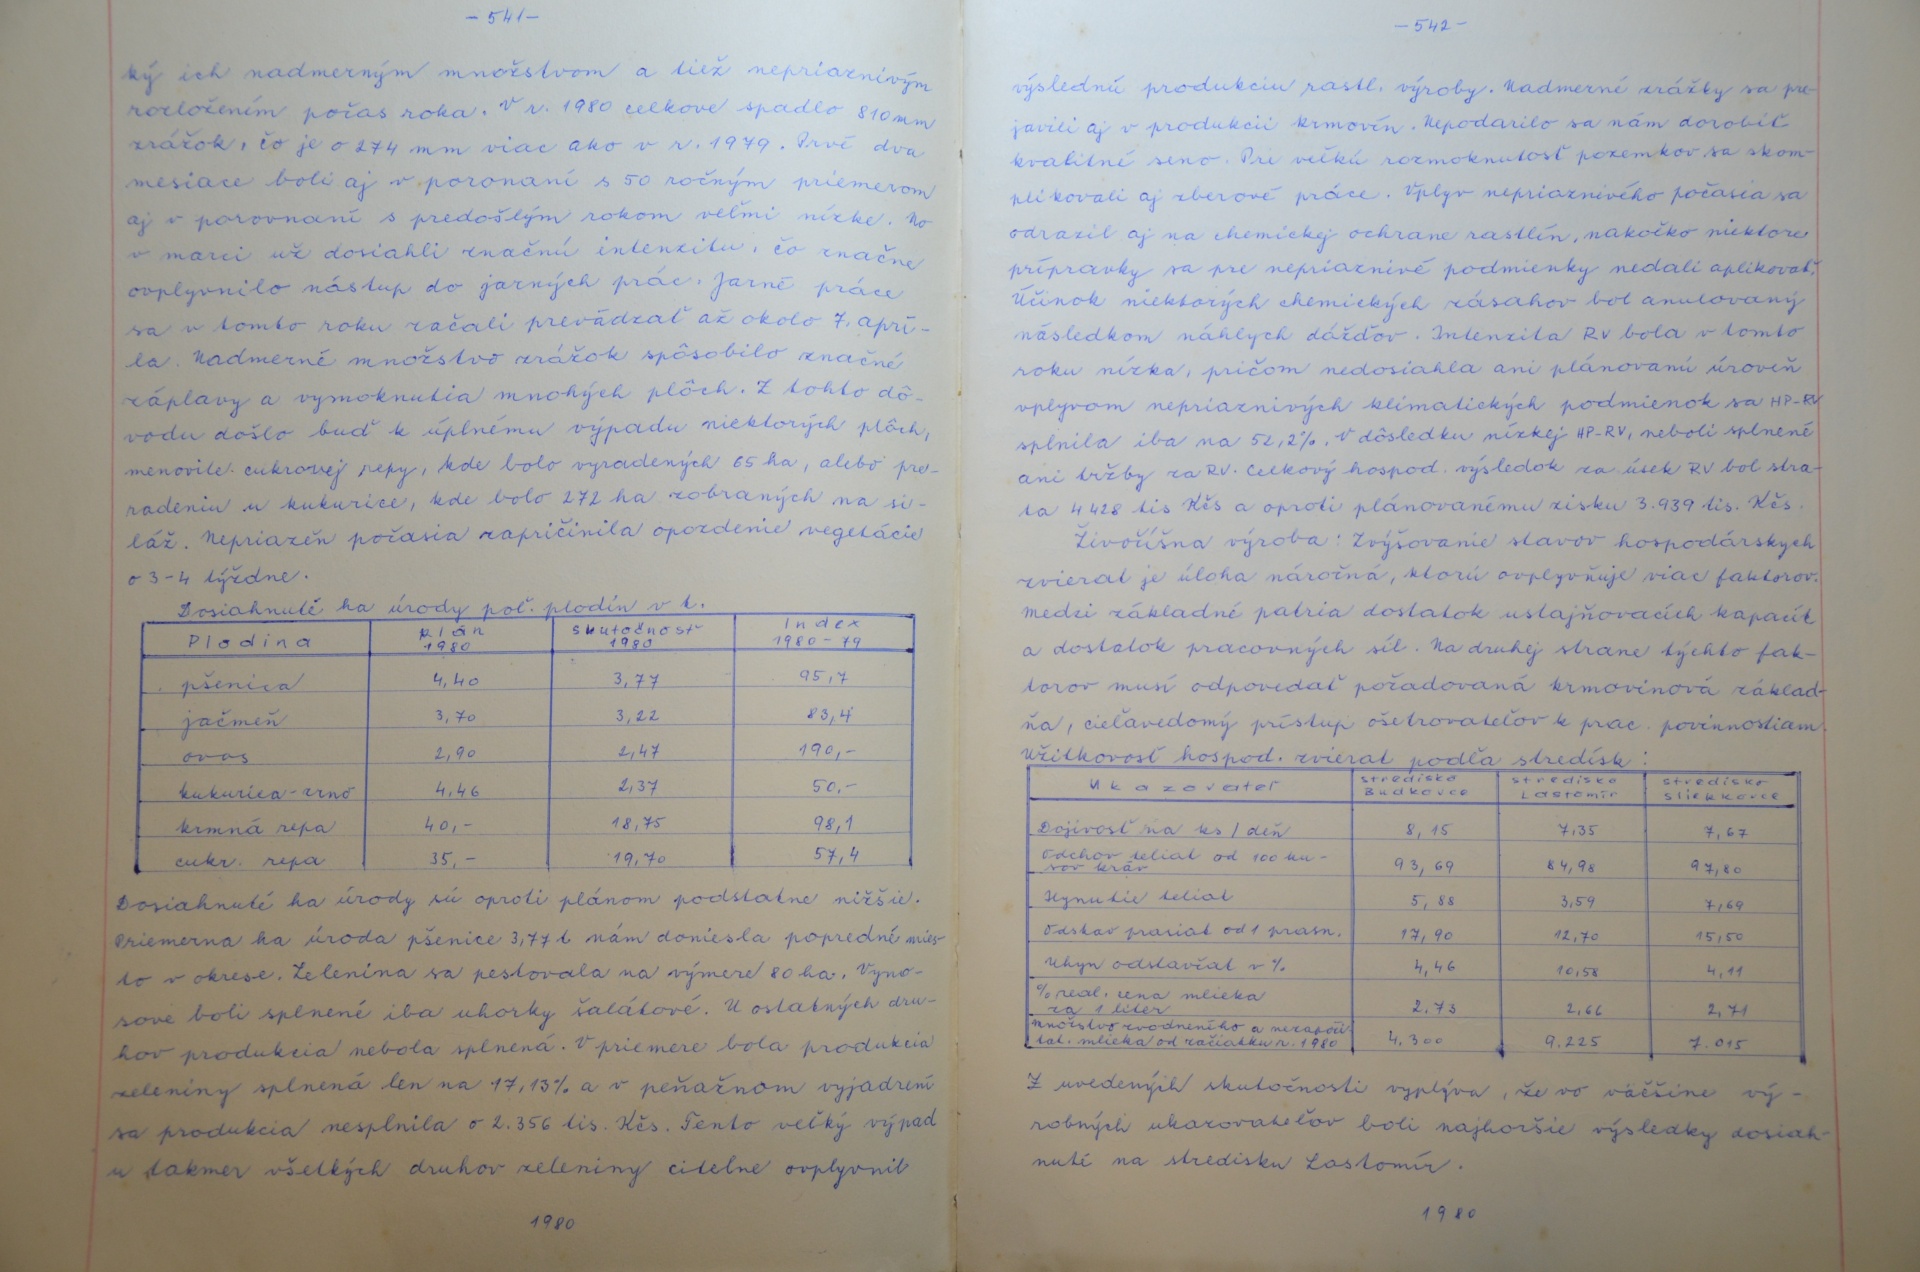 - 541 -
ký ich nadmerným množstvom a tiež nepriaznivým
rozložením počas roka. V r. 1980 celkove spadlo 810 mm
zrážok, čo je o 274 mm viac ako v r. 1979. Prvé dva
mesiace boli aj v poronaní s 50 ročným priemerom
aj v porovnaní s predošlým rokom veľmi nízke. No
v marci už dosiahli značnú intenzitu, čo značne
ovplyvnilo nástup do jarných prác. Jarné práce
sa v tomto roku začali prevádzať až okolo 7. aprí-
la. Nadmerné množstvo zrážok spôsobilo značné
záplavy a vymoknutia mnohých plôch. Z tohto dô-
vodu došlo buď k úplnému výpadu niektorých plôch,
menovite cukrovej repy, kde bolo vyradených 65 ha, alebo pre-
radeniu u kukurice, kde bolo 272 ha zobraných na si-
láž. Nepriazeň počasia zapričinila opozdenie vegetácie
o 3-4 týždne.
Dosiahnuté ha úrody poľ. plodín v t.
Plodina plán 1980 skutočnosť 1980 Index 1980-79
pšenica 4,40 3,77 95,7
jačmeň 3,70 3,22 83,4
ovos 2,90 2,47 190,-
kukurica-zrno 4,46 2,37 50,-
krmná repa 40,- 18,75 98,1
cukr. repa 35,- 19,70 57,4
Dosiahnuté ha úrody sú oproti plánom podstatne nižšie.
Priemerna ha úroda pšenice 3,77 t nám doniesla popredné mies-
to v okrese. Zelenina sa pestovala na výmere 80 ha. Výno-
sove boli splnené iba uhorky šalátové. U ostatných dru-
hov produkcia nebola splnená. V priemere bola produkcia
zeleniny splnená len na 17,13% a v peňažnom vyjadrení
sa produkcia nesplnila o 2.356 tis. Kčs. Tento veľký výpad
u takmer všetkých druhov zeleniny citelne ovplyvnil
1980
- 542 -
výslednú produkciu rastl. výroby. Nadmerné zrážky sa pre-
javili aj v produkcii krmovín. Nepodarilo sa nám dorobiť
kvalitné seno. Pre veľkú rozmoknutosť pozemkov sa skom-
plikovali aj zberové práce. Vplyv nepriaznivého počasia sa
odrazil aj na chemickej ochrane rastlín, nakoľko niektore
prípravky sa pre nepriaznivé podmienky nedali aplikovať.
Účinok niektorých chemických zásahov bol anulovaný
následkom náhlych dážďov. Intenzita RV bola v tomto
roku nízka, pričom nedosiahla ani plánovanú úroveň
vplyvom nepriaznivých klimatických podmienok sa HP-RV
splnila iba na 52,2%. V dôsledku nízkej HP-RV, neboli splnené
ani tržby za RV. Celkový hospod. výsledok za úsek RV bol stra-
ta 4 428 tis Kčs a oproti plánovanému zisku 3.939 tis. Kčs.
Živočíšna výroba: Zvýšovanie stavov hospodárskych
zvierat je úloha náročná, ktorú ovplyvňuje viac faktorov.
Medzi základné patria dostatok ustajňovacích kapacít
a dostatok pracovných síl. Na druhej strane týchto fak-
torov musí odpovedať požadovaná krmovinová základ-
ňa, cieľavedomý prístup ošetrovateľov k prac. povinnostiam.
Užitkovosť hospod. zvierat podľa stredísk:
Ukazovateľ stredisko Budkovce stredisko Lastomír stredisko Sliekkovce
Dojivosť na ks/deň 8,15 7,35 7,67
Odchov teliat od 100 ku-
sov kráv 93,69 84,98 97,80
Hynutie teliat 5,88 3,59 7,69
Odstav prasiat od 1 prasn. 17,90 12,70 15,50
Úhyn odstavčiat v % 4,46 10,58 4,11
% real. cena mlieka
za 1 liter 2.73 2,66 2,71
množstvo zvodneného a nezapoči-
tat. mlieka od začiatku r. 1980 4.300 9.225 7.015
Z uvedených skutočnosti vyplýva, že vo väčšine vý-
robných ukazovateľov boli najhoršie výsledky dosiah-
nuté na stredisku Lastomír.
1980